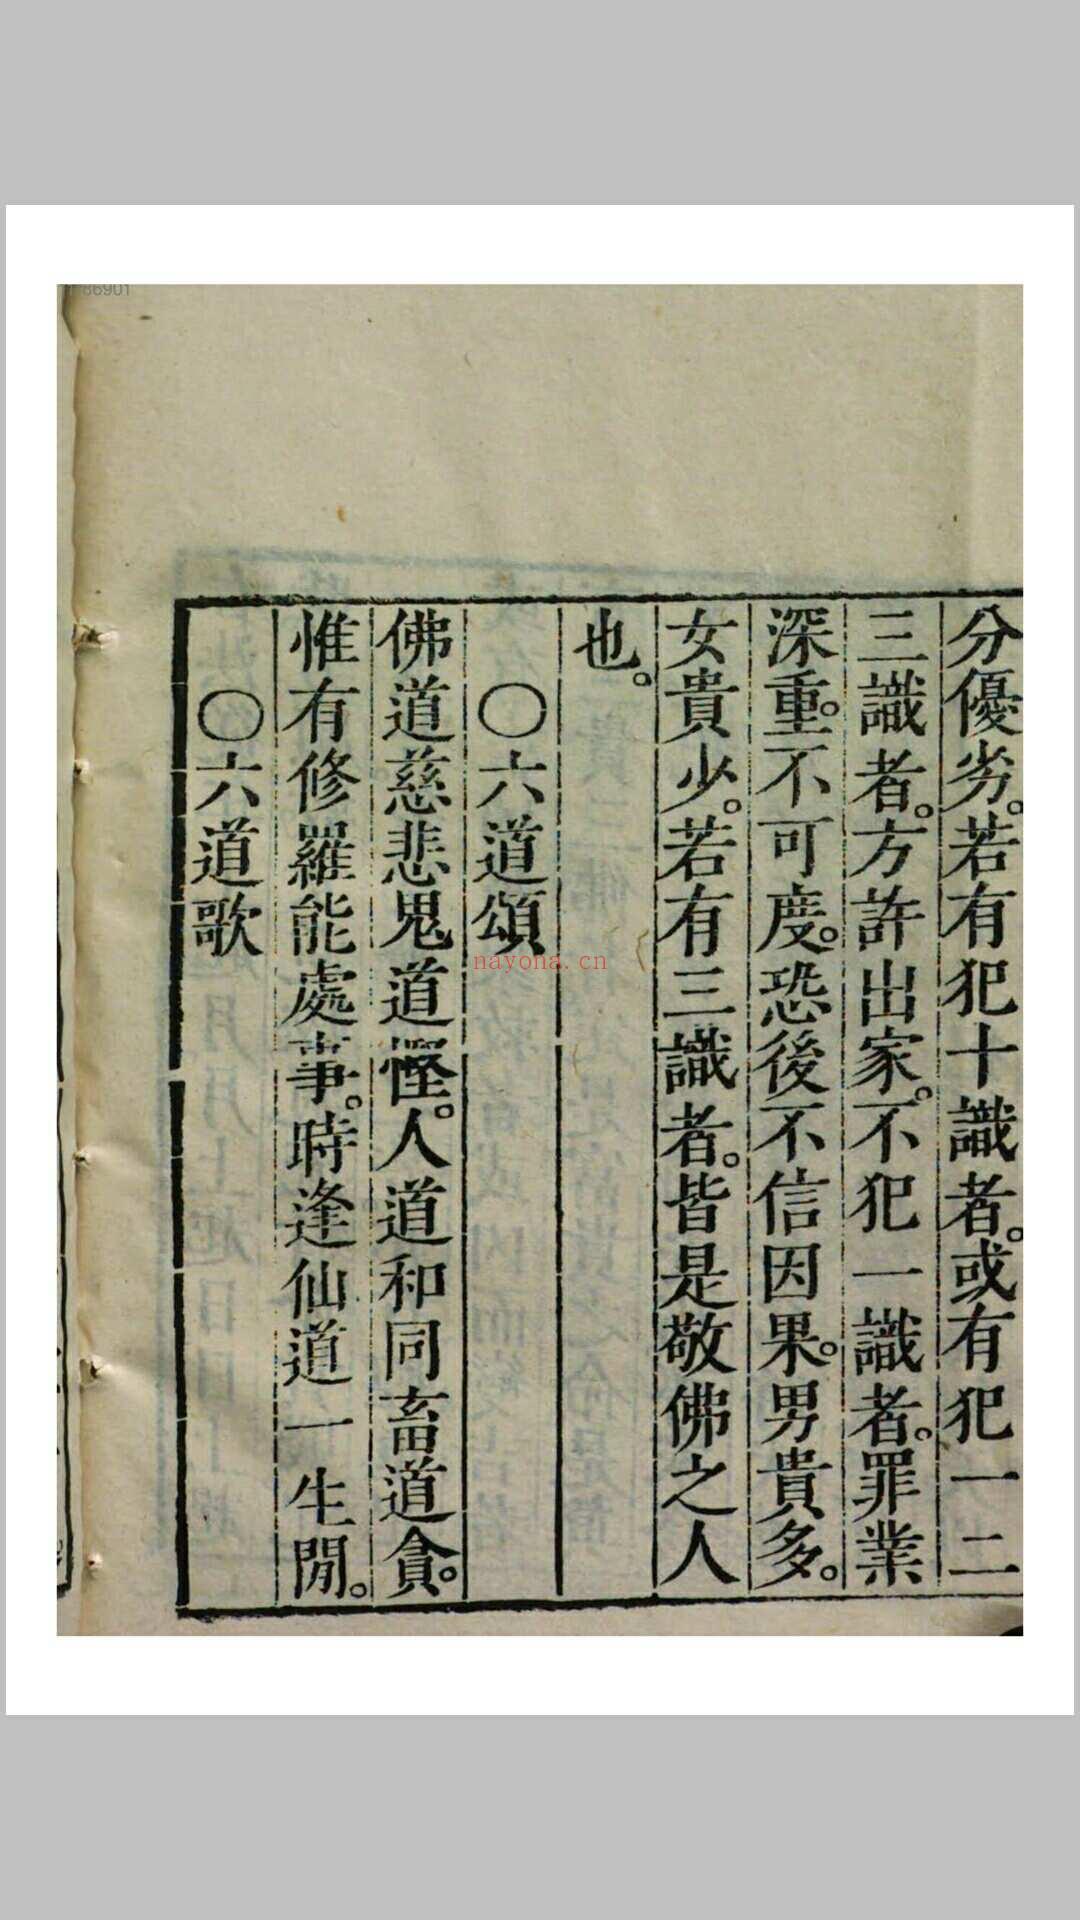 分優劣。若有犯十識者。或有犯一二
三識者。方許出家。不犯一識者。罪業
深重。不可度。恐後不信因果。男貴多。
女貴少。若有三識者。皆是敬佛之人
也。
〇六道頌
佛道慈悲鬼道慳。人道和同畜道貪。
惟有修羅能處事。時逢仙道一生閒。
〇六道歌
nayona.cn
86901